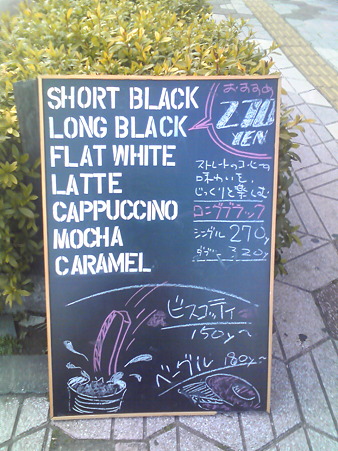 SHORT BLACK
LONG BLACK
FLAT WHITE
LATTE
CAPPUCCINO
MOCHA
CARAMEL
おすすめ
270
YEN
ストレートのコーヒーの
味わいを、
じっくりと楽しむ
ロングブラック
シングル 270y
ダブル 320y
ビスコッティ
150y~
ベーグル 180y~